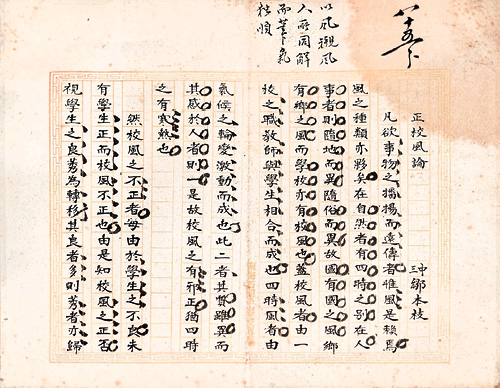 以風襯風
人所同解
而筆下氣
正校風論
鄒本枝
凡欲事物之播揚而遠傳者惟風是賴焉
風之種類亦夥矣在自然者有四時之別在人
事者則隨地而異隨俗而異故國有國之風鄉
有鄉之風而學校亦有校風也蓋校風者由一
校之職教師與學生相合而成也四時風者由
氣候之輪變激動而成也此二者其質雖異而
其感於人者則一是故校風之有邪正猶四時
之有寒熱也
然校風之不正者毋由於學生之不良未
有學生正而校風不正也由是知校風之正否
視學生之良莠為轉移其良者多則莠者亦歸